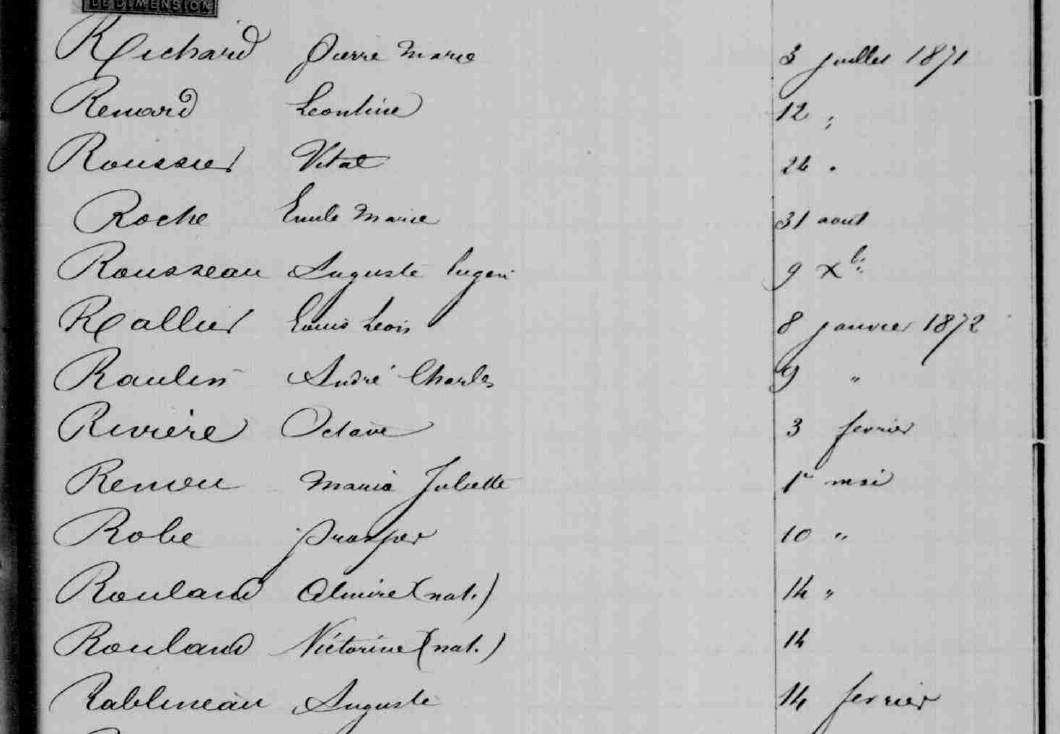 DE DIMENSION
Richard Pierre Marie 3 juillet 1871
Renard Léontine 12 "
Roussier Vital 24 "
Roche Emile Marie 31 aout
Rousseau Auguste Eugène 9 Xbre
Rallier Louis Léon 8 janvier 1872
Raulin André Charles 9 "
Rivière Octave 3 février
Renou Maria Juliette 1er mai
Robe prosper 10 "
Rouland Almire (nat.) 14 "
Rouland Victorine (nat.) 14
Rablineau Auguste 14 fevrier